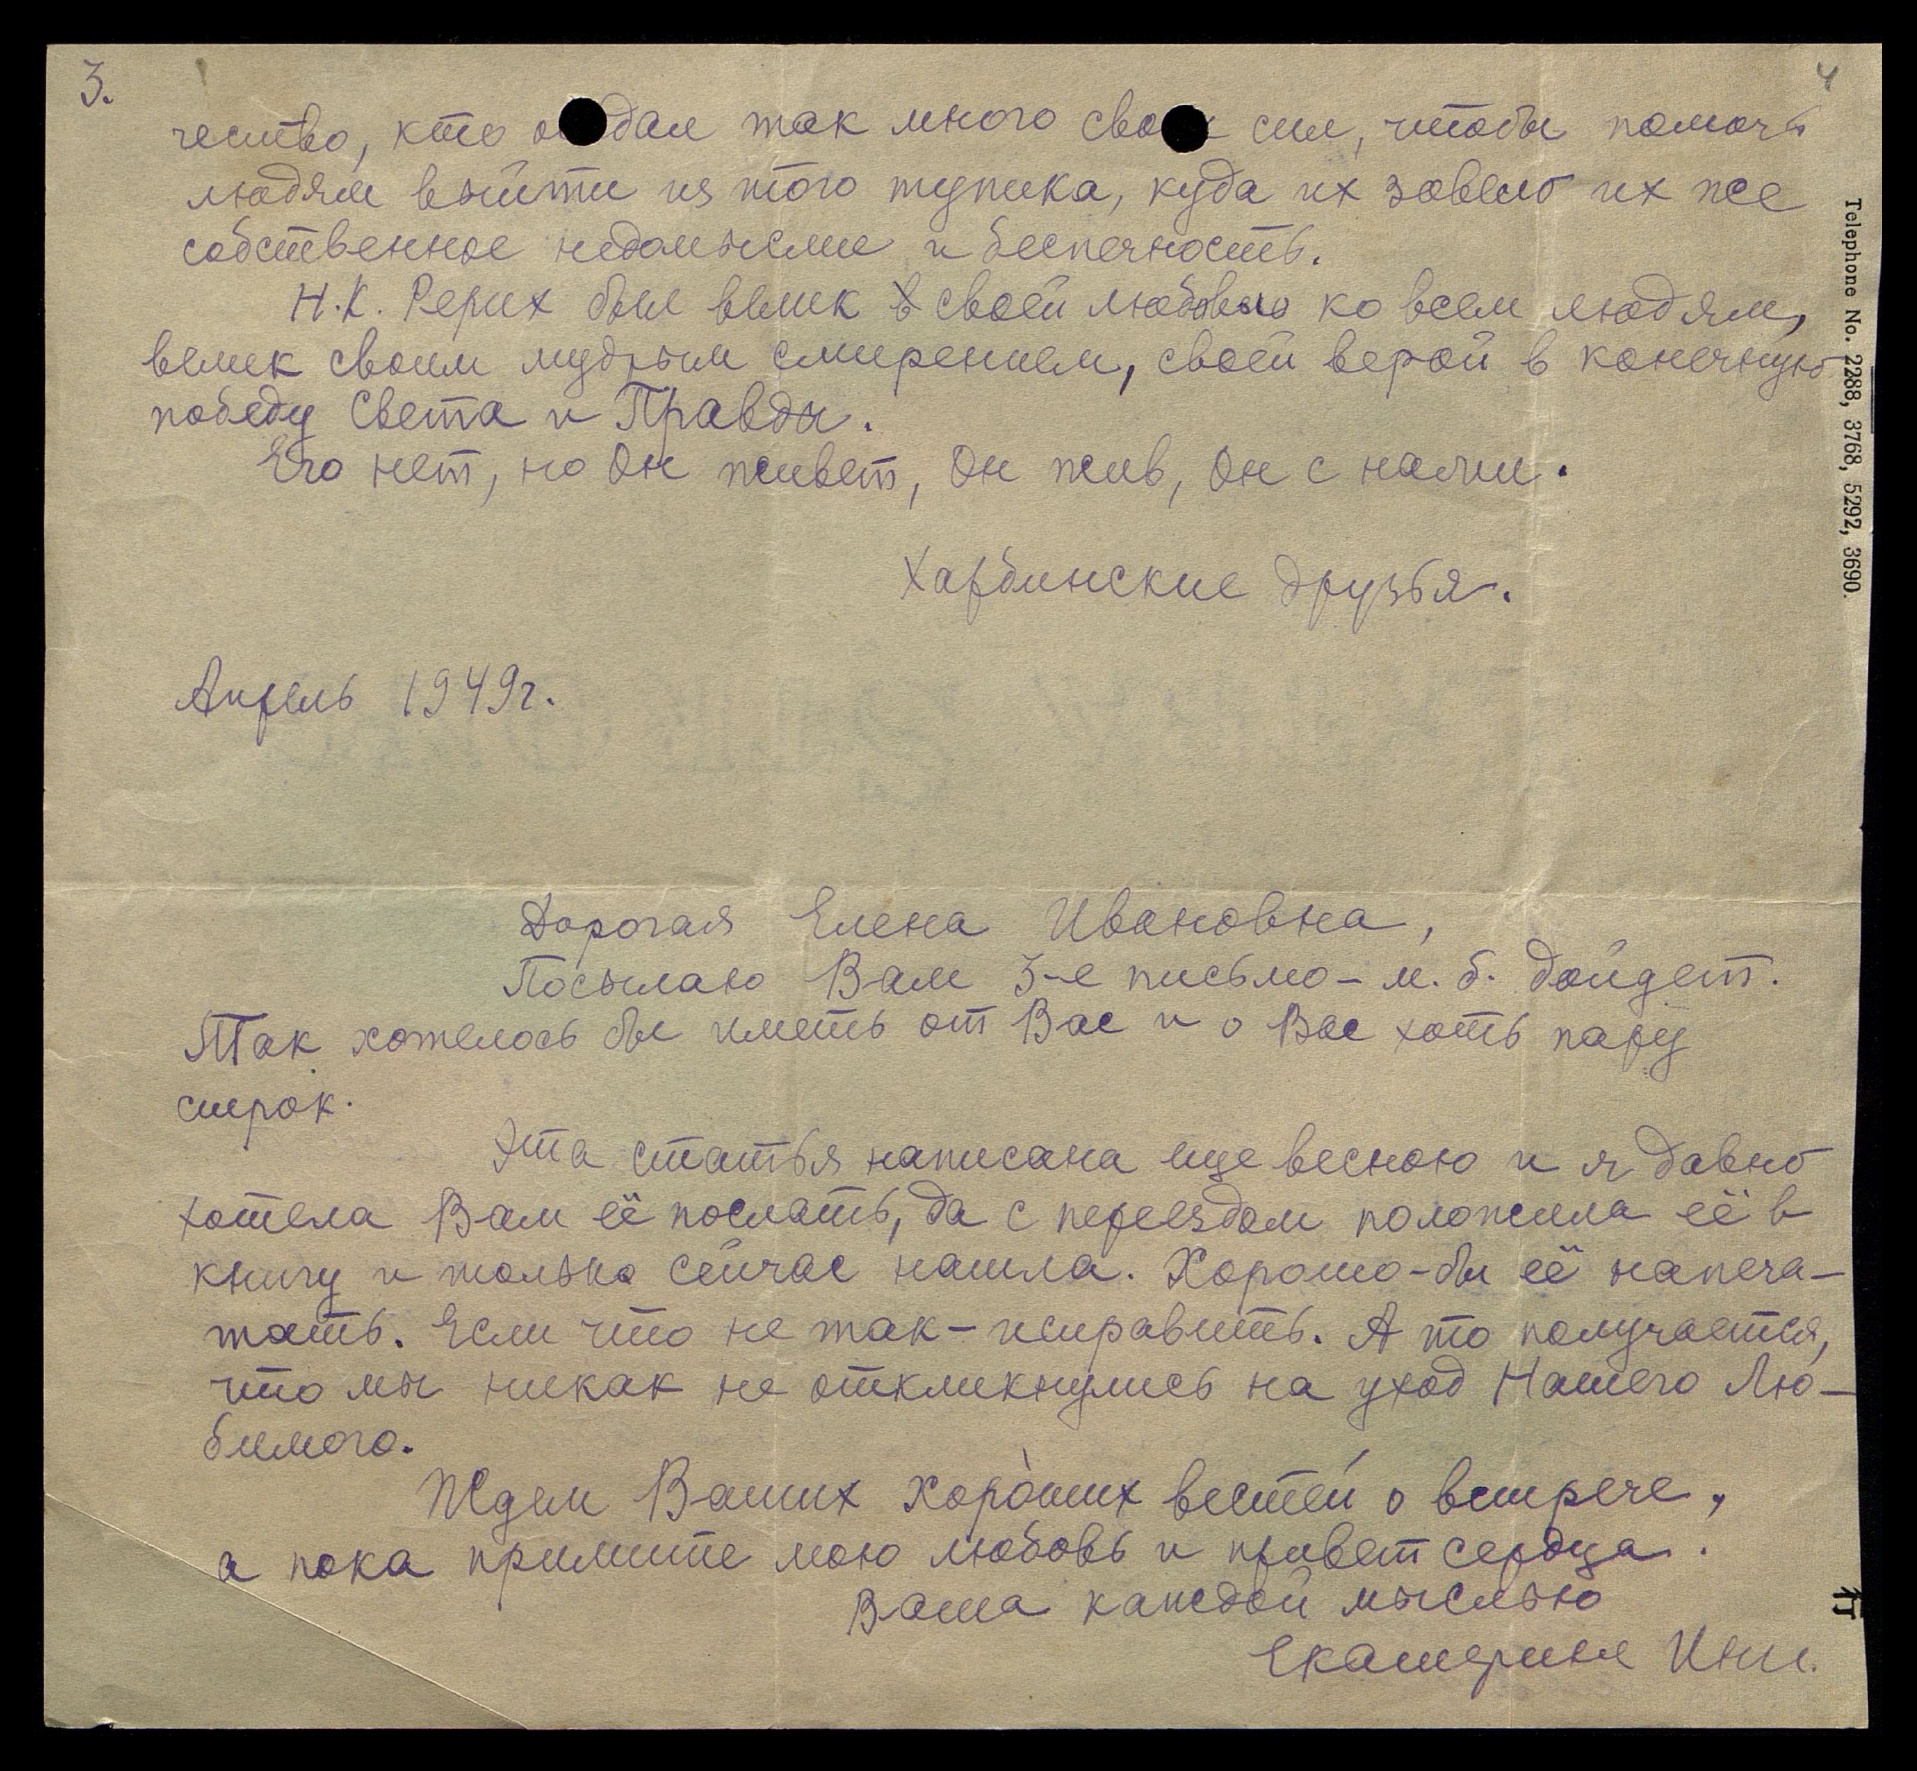 3.
4
чество, кто отдал так много своих сил, чтобы помочь
людям выйти из того тупика, куда их завело их же
собственное недомыслие и беспечность.
Н.К. Рерих был велик в своей любовью ко всем людям,
велик своим мудрым смирением, своей верой в конечную
победу Света и Правды.
Его нет, но Он живет, Он жив, Он с нами.
Харбинские друзья.
Апрель 1949г.
Дорогая Елена Ивановна,
Посылаю Вам 3-е письмо – м. б. дойдет.
Так хотелось бы иметь от Вас и о Вас хоть пару
строк.
Эта статья написана еще весною и я давно
хотела Вам её послать, да с переездом положила её в
книгу и только сейчас нашла. Хорошо-бы её напеча-
тать. Если что не так – исправить. А то получается,
что мы никак не откликнулись на уход Нашего Лю-
бимого.
Ждем Ваших хороших вестей о встрече,
а пока примите мою любовь и привет сердца.
Ваша каждой мыслью
Екатерина Инг.
Telephone No. 2288, 3768, 5292, 3690.
行